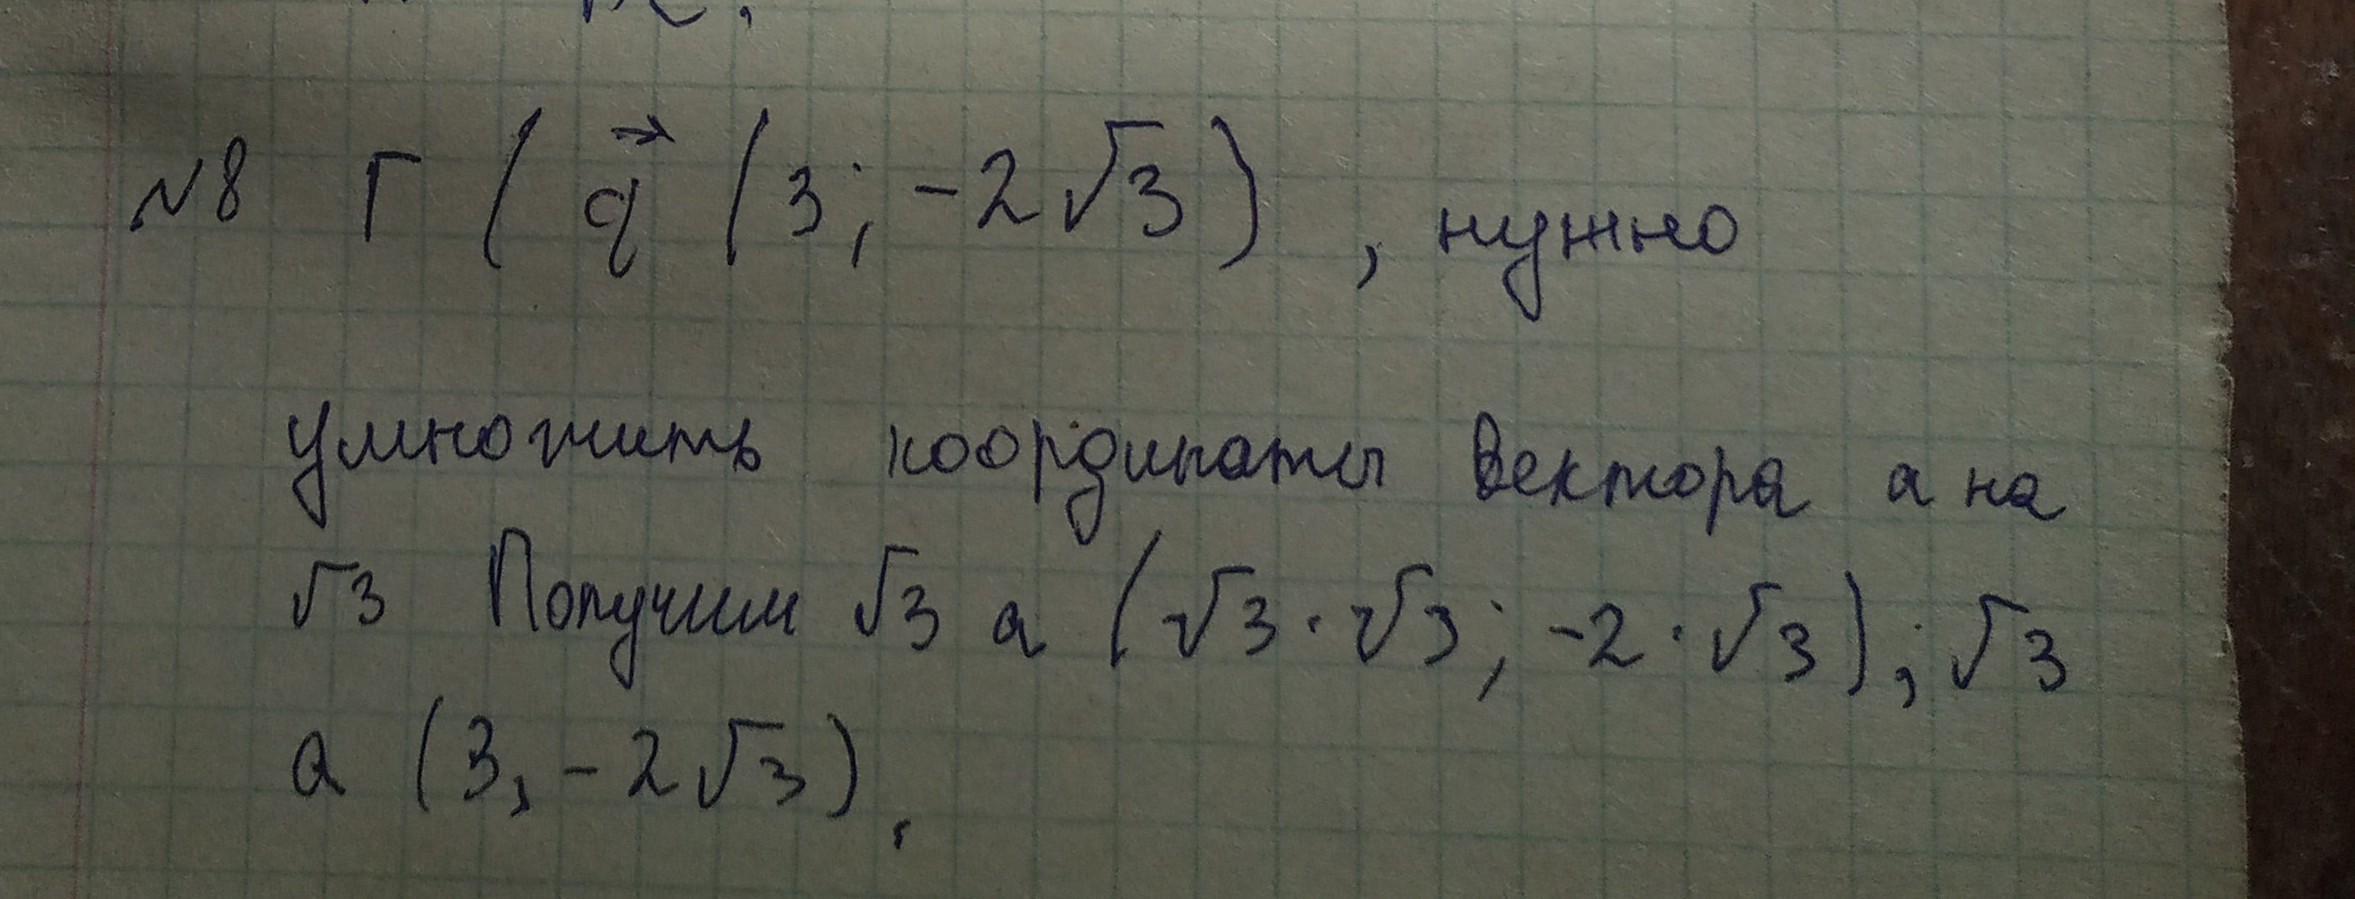 №8 Г ( q⃗ (3; -2√3) , нужно
умножить координаты вектора а на
√3 Получим √3 а (√3 · √3; -2 · √3); √3
а (3, -2√3).